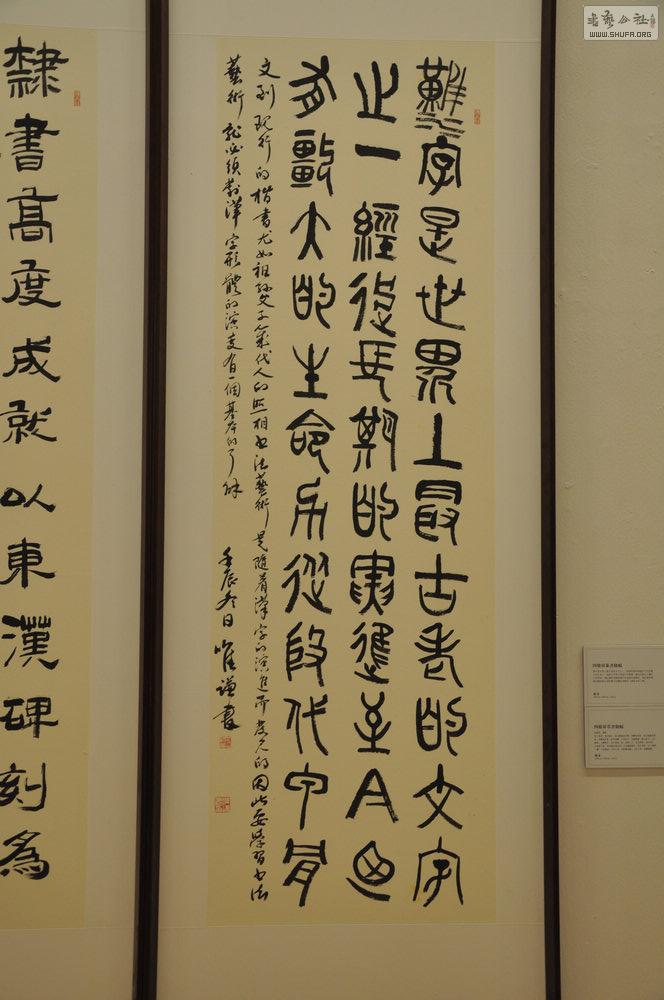 書藝公社
WWW.SHUFA.ORG
漢字是世界上最古老的文字
之一經從長期的實踐至今
有彊大的生命力從殷代甲骨
文到現行的楷書尤如祖孫父子幾代人的照相書法藝術是隨着漢字的演進而發展的因此要學習書法
藝術就必須對漢字形體的演變有一個基本的了解 壬辰冬日 唯謙書
隸書高度成就以東漢碑刻為